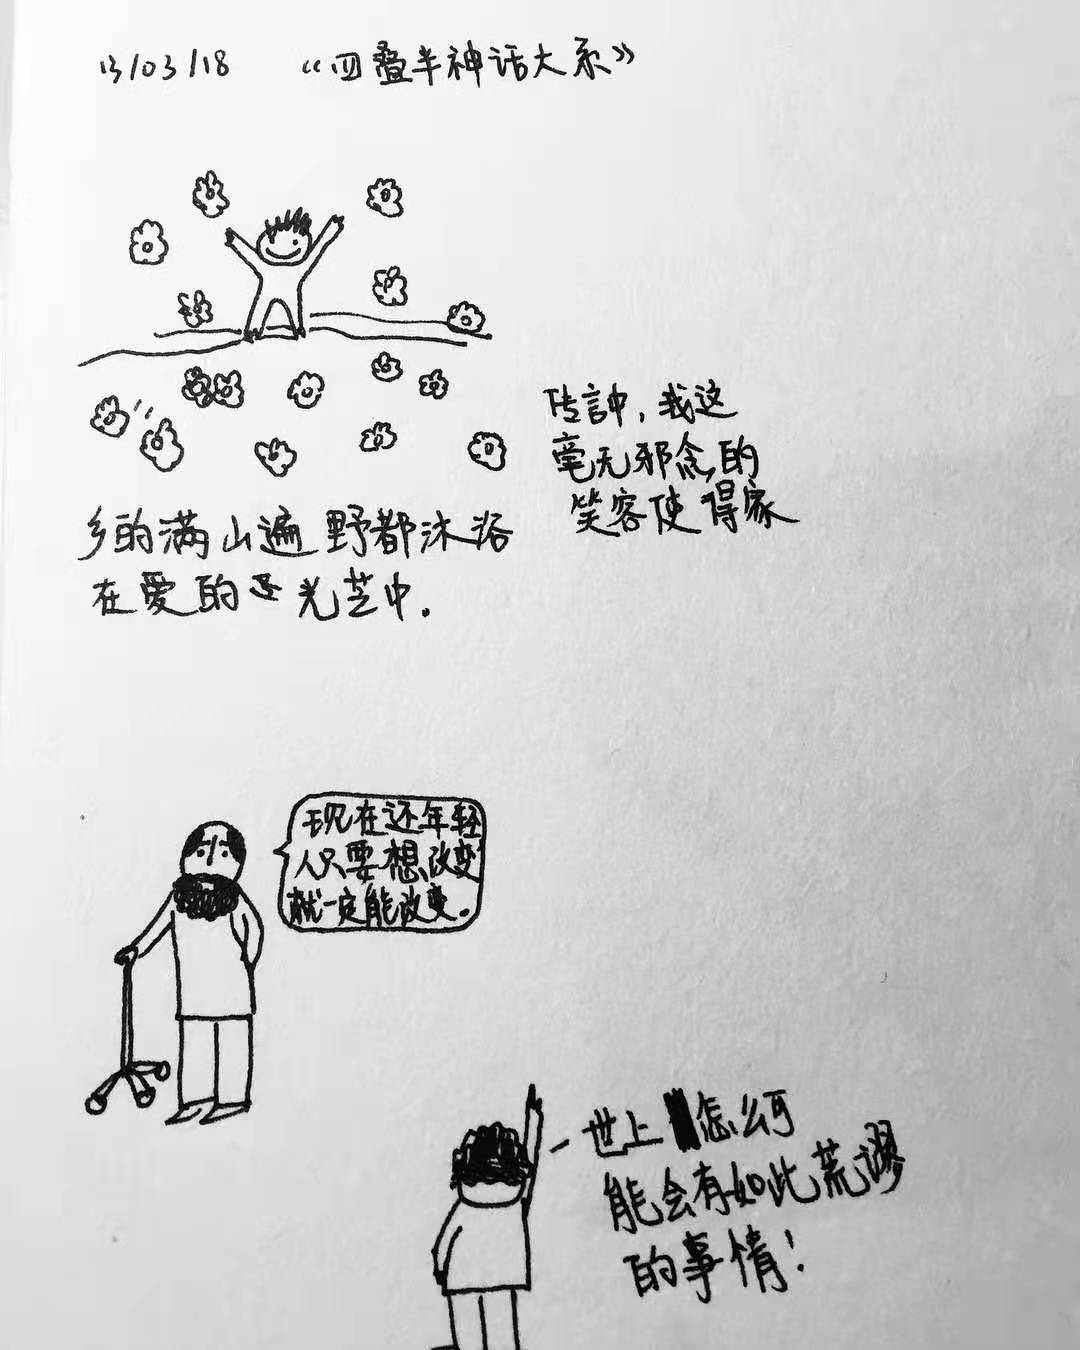 13/03/18 《四叠半神话大系》
传言中,我这
毫无邪念的
笑容使得家
乡的满山遍野都沐浴
在爱的光芒中.
现在还年轻
人只要想改变
就一定能改变.
世上怎么可
能会有如此荒谬
的事情!